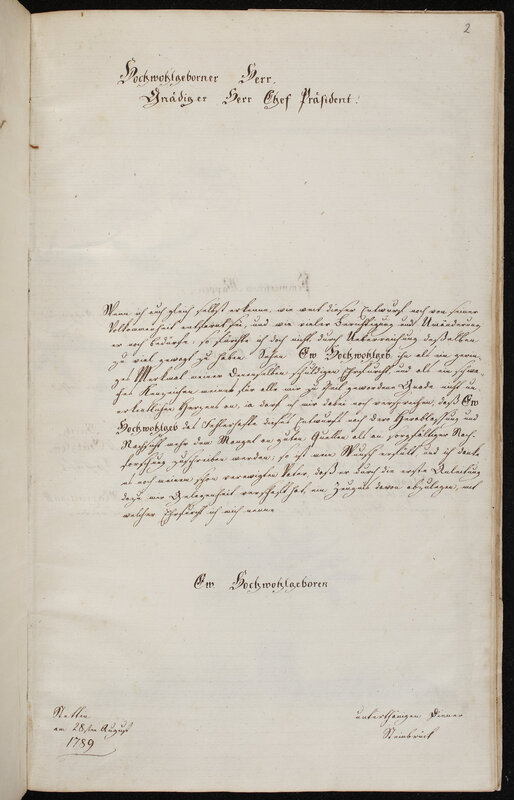 2
Hochwohlgeborner Herr,
Gnädiger Herr Chef Präsident!
Wenn ich auch gleich selbst erkenne, wie weit dieser Entwurf noch von seiner
Vollkommenheit entfernt sey, und wie vieler Berichtigung und Umänderung
er noch bedürfe, so fürchte ich doch nicht durch Ueberreichung desselben
zu viel gewagt zu haben. Sehen Ew Hochwohlgeb. ihn als ein gerin-
ges Merkmal meiner Denenselben schuldigen Ehrfurcht und als ein schwa-
ches Kennzeichen meines für alle mir zu Theil gewordene Gnade nicht un-
erkentlichen Herzens an, ja darf ich mir dabei noch versprechen, daß Ew
Hochwohlgeb das Fehlerhafte dieses Entwurfs nach dero Herablassung und
Nachsicht mehr dem Mangel an guten Quellen als an sorgfältiger Nach-
forschung zuschreiben werden, so ist mein Wunsch erfüllt, und ich danke
es noch meinem schon verewigten Vater, daß er durch die erste Anleitung
dazu mir Gelegenheit verschaft hat, ein Zeugnis davon abzulegen, mit
welcher Ehrfurcht ich mich nenne
Ew. Hochwohlgeboren
Stettin
am 28sten August
1789
unterthänigen Diener
Steinbrück